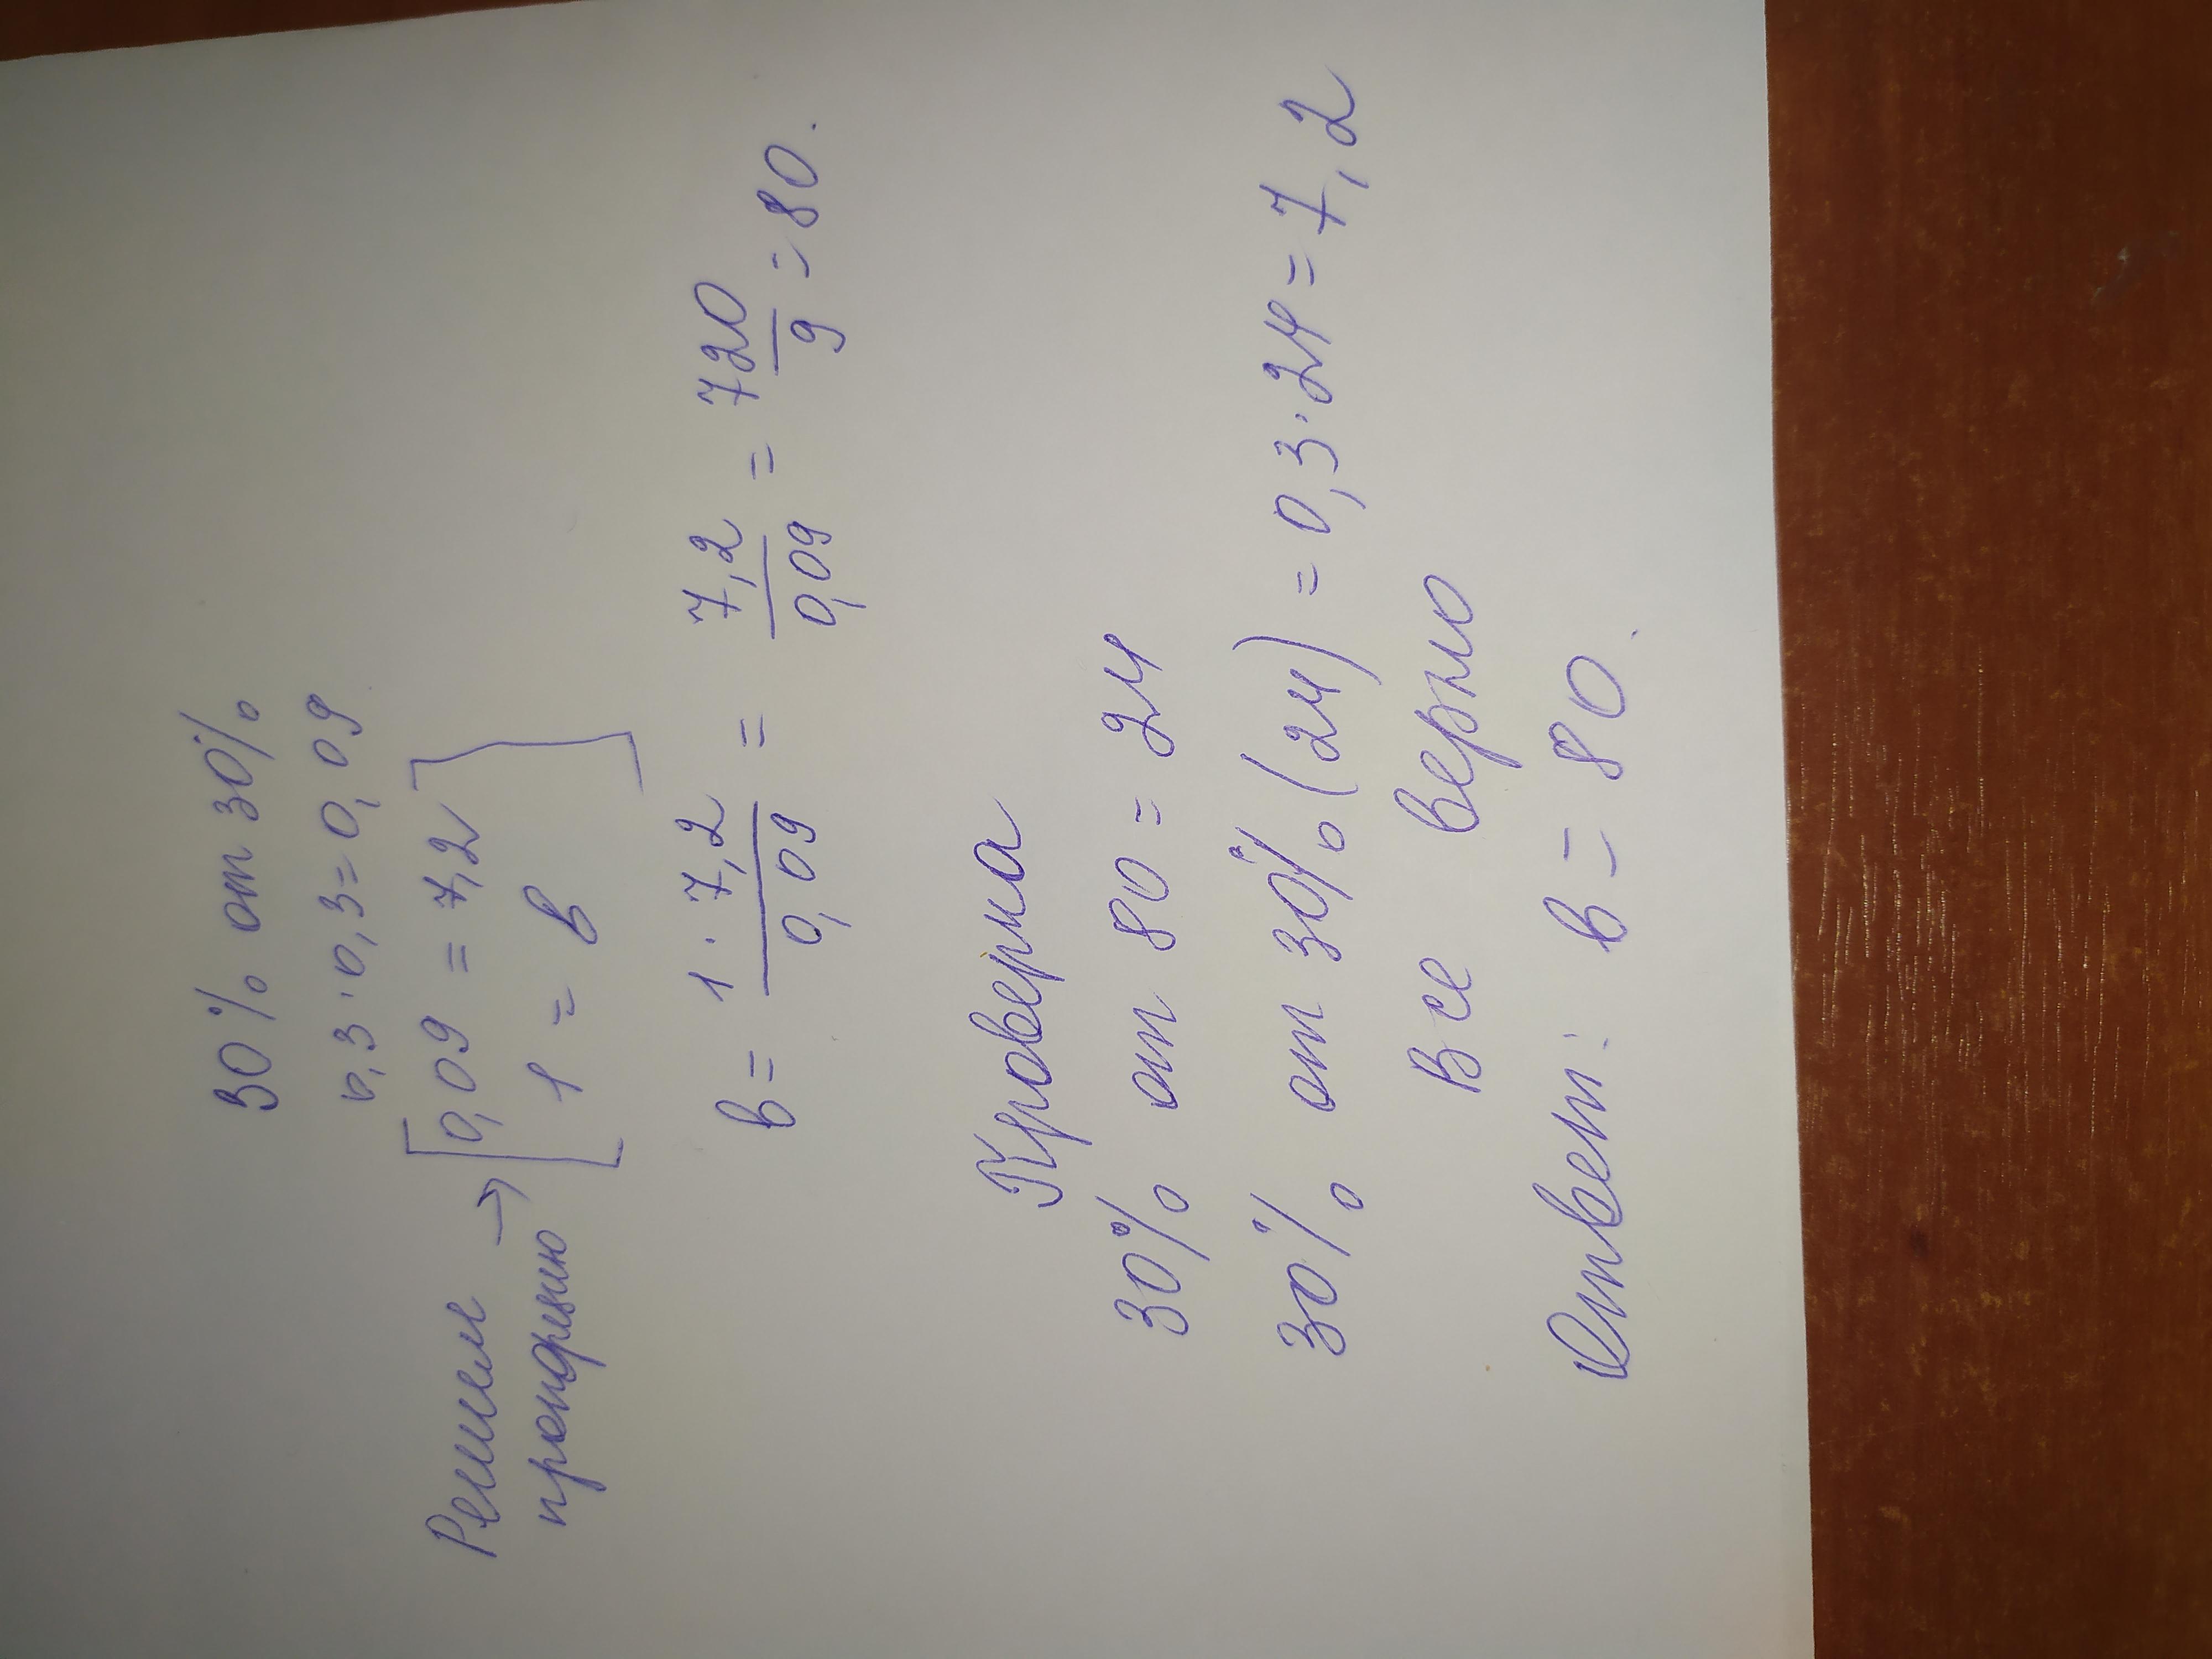 30% от 30%
0,3 · 0,3 = 0,09
Решим → [0,09 = 7,2
пропорцию 1 = в]
в = 1 · 7,2 / 0,09 = 7,2 / 0,09 = 720 / 9 = 80.
Проверка
30% от 80 = 24
30% от 30% (24) = 0,3 · 24 = 7,2
Все верно
Ответ: в = 80.